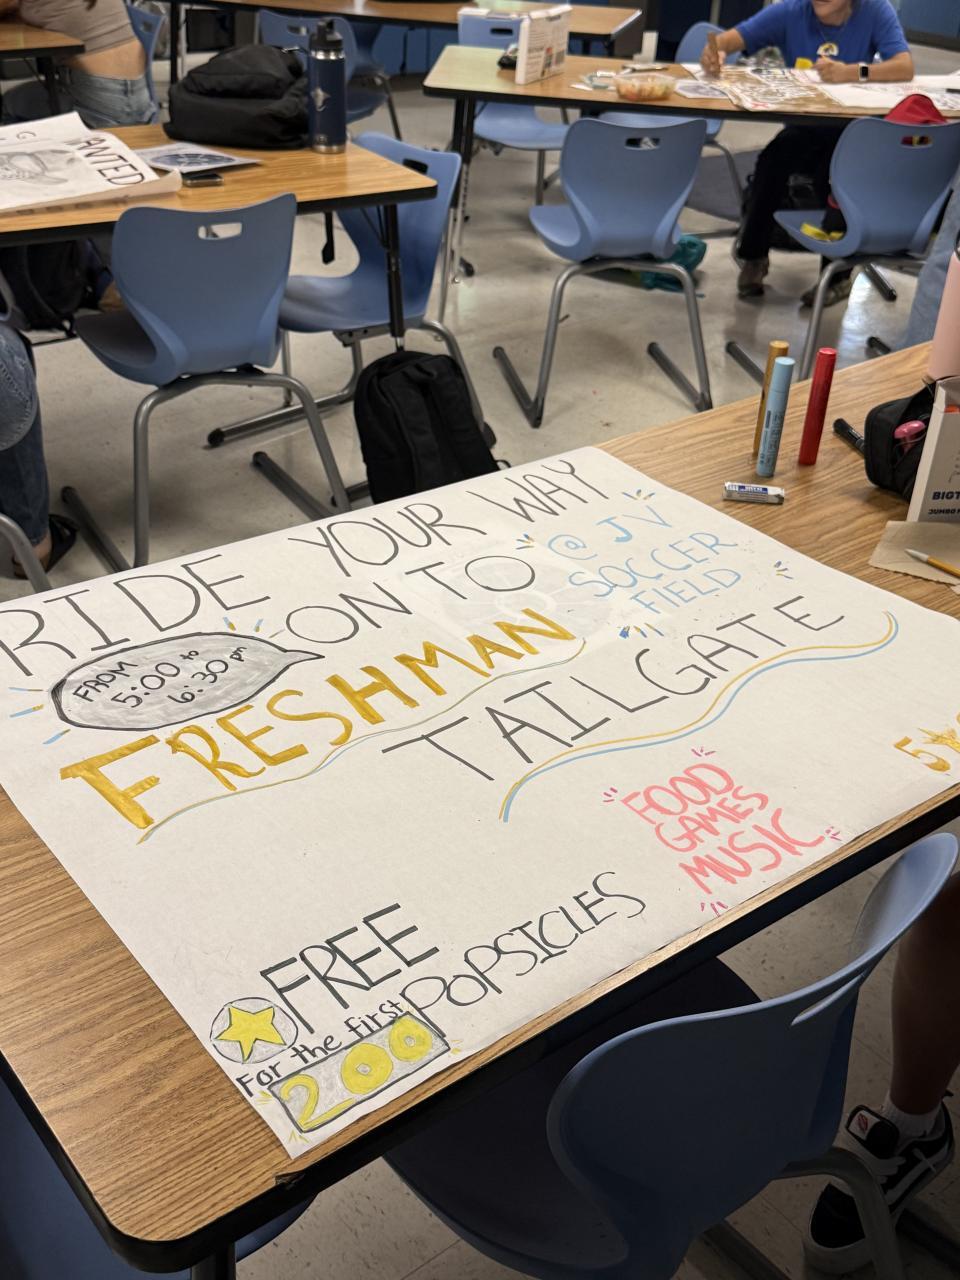 RIDE YOUR WAY
ON TO
@ JV
SOCCER
FIELD
FROM
5:00 to
6:30 pm
FRESHMAN
TAILGATE
FOOD
GAMES
MUSIC
FREE
POPSICLES
For the first
200
WANTED
BIGT
JUMBO